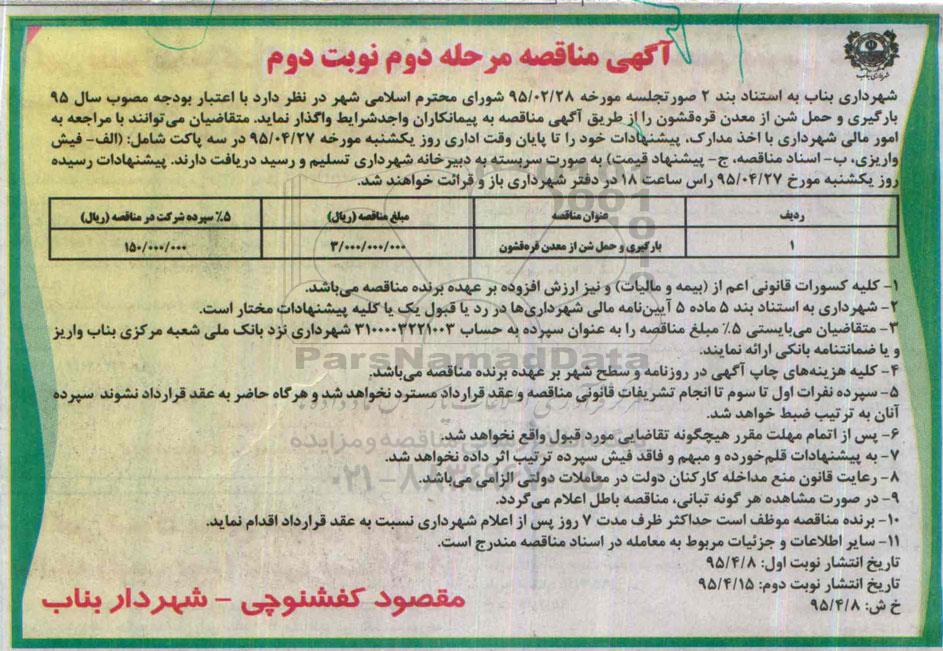 آگهی مناقصه مرحله دوم نوبت دوم
شهرداری بناب
شهرداری بناب به استناد بند ۲ صورتجلسه مورخه ۹۵/۰۲/۲۸ شورای محترم اسلامی شهر در نظر دارد با اعتبار بودجه مصوب سال ۹۵
بارگیری و حمل شن از معدن قره‌قشون را از طریق آگهی مناقصه به پیمانکاران واجدشرایط واگذار نماید. متقاضیان می‌توانند با مراجعه به
امور مالی شهرداری با اخذ مدارک، پیشنهادات خود را تا پایان وقت اداری روز یکشنبه مورخه ۹۵/۰۴/۲۷ در سه پاکت شامل: (الف- فیش
واریزی، ب- اسناد مناقصه، ج- پیشنهاد قیمت) به صورت سربسته به دبیرخانه شهرداری تسلیم و رسید دریافت دارند. پیشنهادات رسیده
روز یکشنبه مورخ ۹۵/۰۴/۲۷ راس ساعت ۱۸ در دفتر شهرداری باز و قرائت خواهند شد.
ردیف عنوان مناقصه مبلغ مناقصه (ریال) ۵٪ سپرده شرکت در مناقصه (ریال)
۱ بارگیری و حمل شن از معدن قره‌قشون ۳/۰۰۰/۰۰۰/۰۰۰ ۱۵۰/۰۰۰/۰۰۰
۱- کلیه کسورات قانونی اعم از (بیمه و مالیات) و نیز ارزش افزوده بر عهده برنده مناقصه می‌باشد.
۲- شهرداری به استناد بند ۵ ماده ۵ آیین‌نامه مالی شهرداری‌ها در رد یا قبول یک یا کلیه پیشنهادات مختار است.
۳- متقاضیان می‌بایستی ۵٪ مبلغ مناقصه را به عنوان سپرده به حساب ۳۱۰۰۰۰۳۲۲۱۰۰۳ شهرداری نزد بانک ملی شعبه مرکزی بناب واریز
و یا ضمانتنامه بانکی ارائه نمایند.
ParsNamadData
۴- کلیه هزینه‌های چاپ آگهی در روزنامه و سطح شهر بر عهده برنده مناقصه می‌باشد.
۵- سپرده نفرات اول تا سوم تا انجام تشریفات قانونی مناقصه و عقد قرارداد مسترد نخواهد شد و هرگاه حاضر به عقد قرارداد نشوند سپرده
آنان به ترتیب ضبط خواهد شد.
۶- پس از اتمام مهلت مقرر هیچگونه تقاضایی مورد قبول واقع نخواهد شد.
۷- به پیشنهادات قلم‌خورده و مبهم و فاقد فیش سپرده ترتیب اثر داده نخواهد شد.
۸- رعایت قانون منع مداخله کارکنان دولت در معاملات دولتی الزامی می‌باشد.
۹- در صورت مشاهده هر گونه تبانی، مناقصه باطل اعلام می‌گردد.
۱۰- برنده مناقصه موظف است حداکثر ظرف مدت ۷ روز پس از اعلام شهرداری نسبت به عقد قرارداد اقدام نماید.
۱۱- سایر اطلاعات و جزئیات مربوط به معامله در اسناد مناقصه مندرج است.
تاریخ انتشار نوبت اول: ۹۵/۴/۸
تاریخ انتشار نوبت دوم: ۹۵/۴/۱۵
خ ش: ۹۵/۴/۸
مقصود کفشنوچی - شهردار بناب